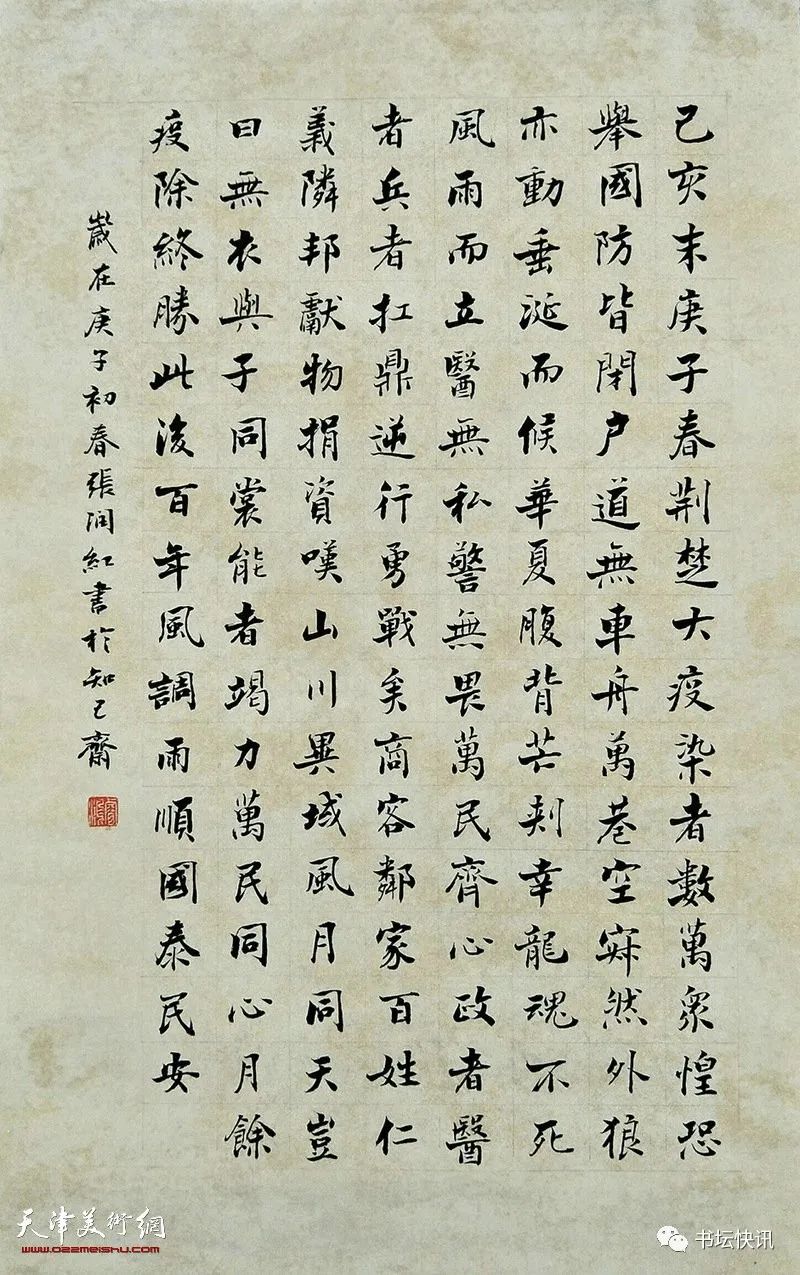 己亥末庚子春荆楚大疫染者數萬衆惶恐
舉國防皆閉户道無車舟萬巷空寂然外狼
亦動垂涎而候華夏腹背芒刺幸龍魂不死
風雨而立醫無私警無畏萬民齊心政者醫
者兵者扛鼎逆行勇戰矣商客鄰家百姓仁
義隣邦獻物捐資嘆山川異域風月同天豈
曰無衣與子同裳能者竭力萬民同心月餘
疫除終勝此後百年風調雨順國泰民安
歲在庚子初春張潤紅書於知己齋
天津美術網
www.022meishu.com
书坛快讯